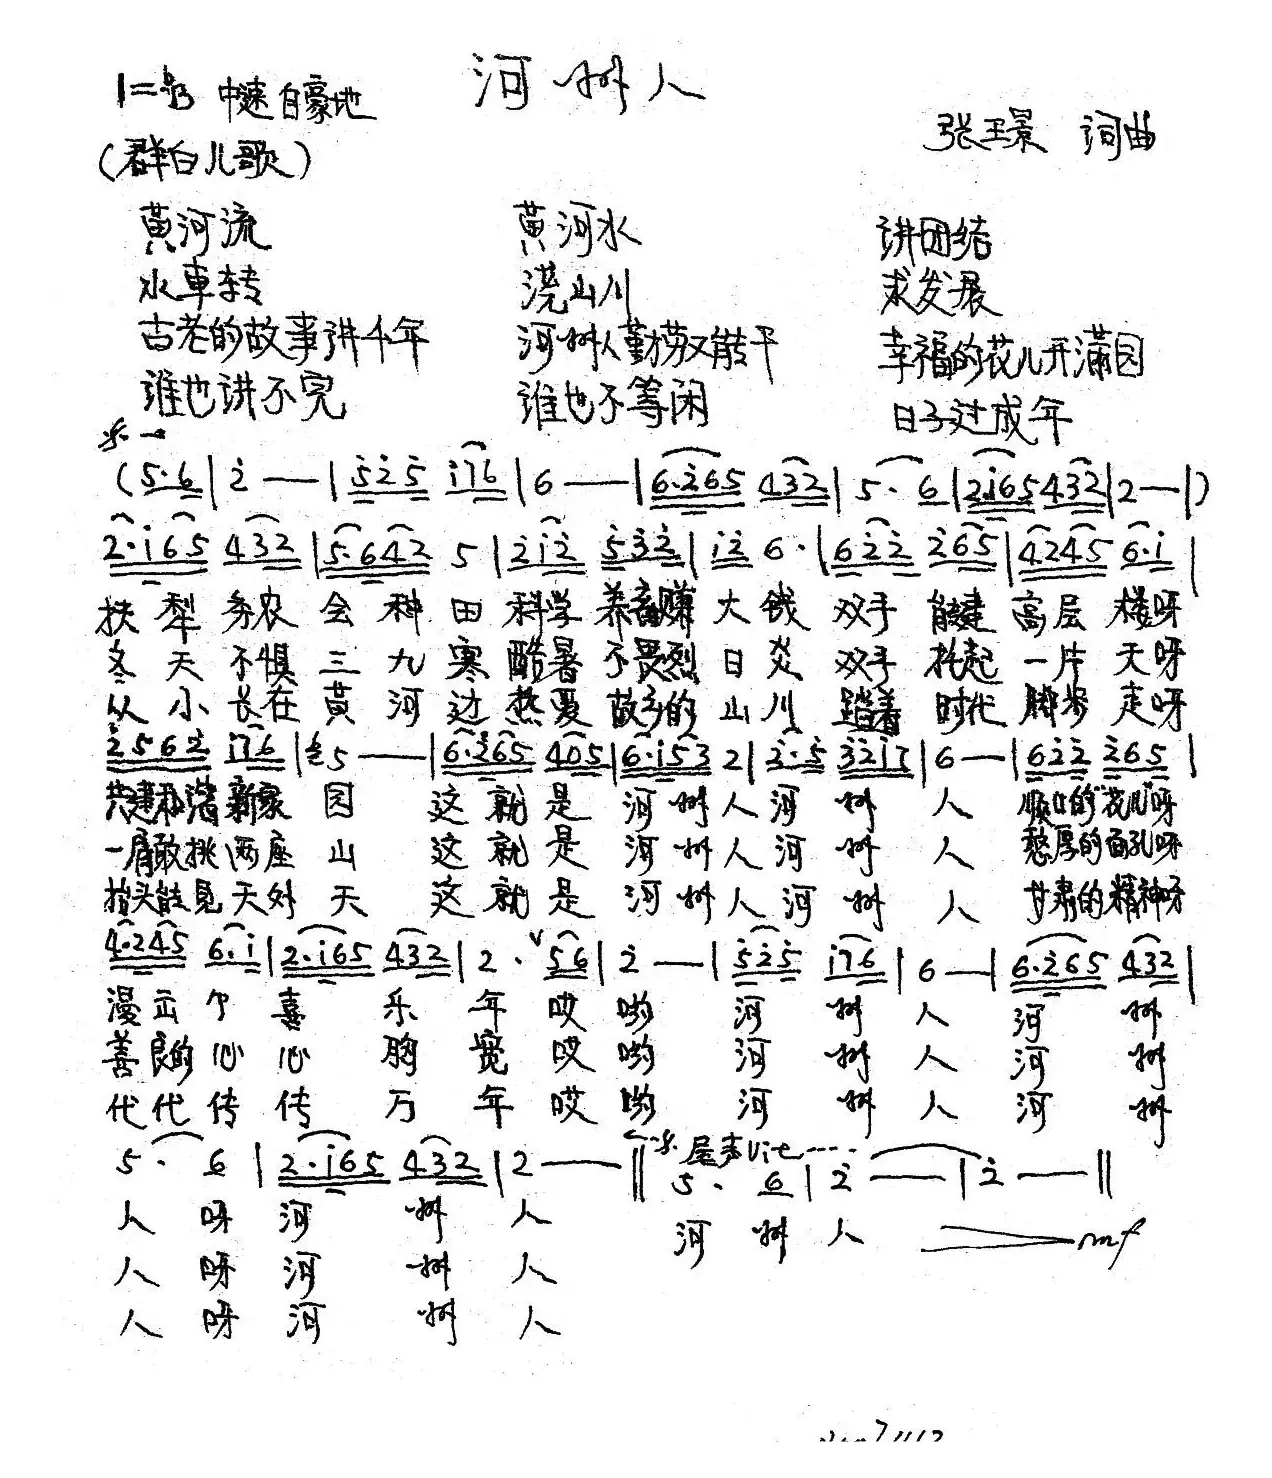 河州人
1=♭B 中速 自豪地
张玉景 词曲
(群白儿歌)
黄河流 黄河水 讲团结
水車转 浇山川 求发展
古老的故事讲千年 河州人勤劳又能干 幸福的花儿开满园
谁也讲不完 谁也不等闲 日子过成年
(5·6|2̇ — —|5̇2̇5̇ i76|6 — —|6·2̇65 432|5· 6|2·i65 432|2 —|)
2·i65 432|5·642 5|2̇i2̇ 5̇3̇2̇|i2̇ 6·|62̇2̇ 2̇65|4245 6·i|
扶犁务农会种田科学养畜赚大钱双手能建高层楼呀
冬天不惧三九寒酷暑不畏烈日炎双手托起一片天呀
从小长在黄河过热夏故乡的山川踏着时代脚步走呀
2̇562̇ i76|5 — —|6·2̇65 405|6·i53 2|2̇·5̇ 3̇2̇i7|6 —|62̇2̇ 2̇65|
共建和谐新家园 这就是河州人河州人 顺口的"花儿"呀
一肩敢挑两座山 这就是河州人河州人 憨厚的面孔呀
抬头能見天外天 这就是河州人河州人 甘肃的精神呀
4·245 6·i|2·i65 432|2· ∨56|2̇ —|5̇2̇5̇ i76|6 —|6·2̇65 432|
漫出个喜乐年哎哟河州人河州
善良的心心胸宽哎哟河州人河州
代代传传万年哎哟河州人河州
5· 6|2·i65 432|2 — —‖ 尾声
5· 6|2̇ — —|2̇ — —‖
人呀河州人 河州人 mf
人呀河州人
人呀河州人